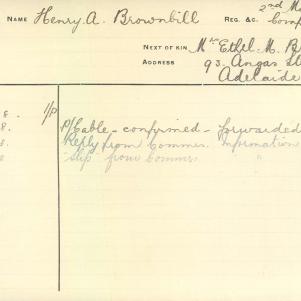 NAME Henry A. Brownbill REG. &C. 2nd M
Comp
NEXT OF KIN Mrs Ethel. M. B
ADDRESS 93. Angas St
Adelaide
8. 1/P P/Cable - confirmed - forwarded
8. Reply from Commr. Information
Slip from Commr. "